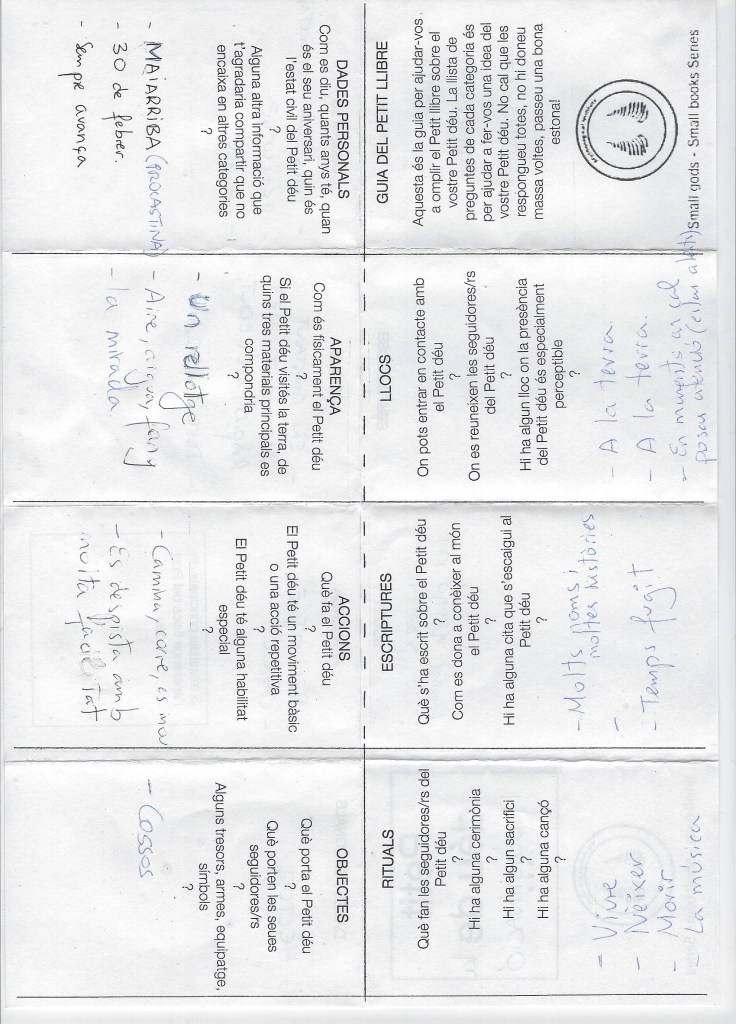 Small gods - Small books Series
GUIA DEL PETIT LLIBRE
Aquesta és la guia per ajudar-vos
a omplir el Petit llibre sobre el
vostre Petit déu. La llista de
preguntes de cada categoria és
per ajudar a fer-vos una idea del
vostre Petit déu. No cal que les
respongueu totes, no hi doneu
massa voltes, passeu una bona
estona!
LLOCS
On pots entrar en contacte amb
el Petit déu
?
On es reuneixen les seguidores/rs
del Petit déu
?
Hi ha algun lloc on la presència
del Petit déu és especialment
perceptible
?
- A la terra.
- A la terra.
- En moments on cal
posar atenció
ESCRIPTURES
Què s'ha escrit sobre el Petit déu
?
Com es dona a conèixer al món
el Petit déu
?
Hi ha alguna cita que s'escaigui al
Petit déu
?
- Molts noms i
moltes històries
-
- Temps fugit
RITUALS
Què fan les seguidores/rs del
Petit déu
?
Hi ha alguna cerimònia
?
Hi ha algun sacrifici
?
Hi ha alguna cançó
?
- Viure
- Nèixer
- Morir
- La música
DADES PERSONALS
Com es diu, quants anys té, quan
és el seu aniversari, quin és
l'estat civil del Petit déu
?
Alguna altra informació que
t'agradaria compartir que no
encaixa en altres categories
?
- MAIARRIBA (PROCASTINA)
- 30 de febrer.
- Sempre avança
APARENÇA
Com és físicament el Petit déu
?
Si el Petit déu visités la terra, de
quins tres materials principals es
compondria
?
- Un rellotge
- Aire, aigua, fang
- la mirada
ACCIONS
Què fa el Petit déu
?
El Petit déu té un moviment bàsic
o una acció repetitiva
?
El Petit déu té alguna habilitat
especial
?
- Camina, corre, es mou
- Es despista amb
molta facilitat
OBJECTES
Què porta el Petit déu
?
Què porten les seues
seguidores/rs
?
Alguns tresors, armes, equipatge,
símbols
?
- Cossos